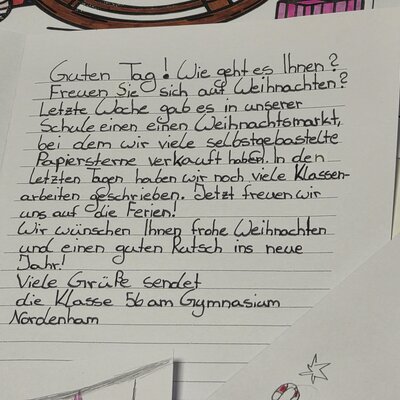 Guten Tag! Wie geht es Ihnen?
Freuen Sie sich auf Weihnachten?
Letzte Woche gab es in unserer
Schule einen einen Weihnachtsmarkt,
bei dem wir viele selbstgebastelte
Papiersterne verkauft haben. In den
letzten Tagen haben wir noch viele Klassen-
arbeiten geschrieben. Jetzt freuen wir
uns auf die Ferien!
Wir wünschen Ihnen frohe Weihnachten
und einen guten Rutsch ins neue
Jahr!
Viele Grüße sendet
die Klasse 5b am Gymnasium
Nordenham